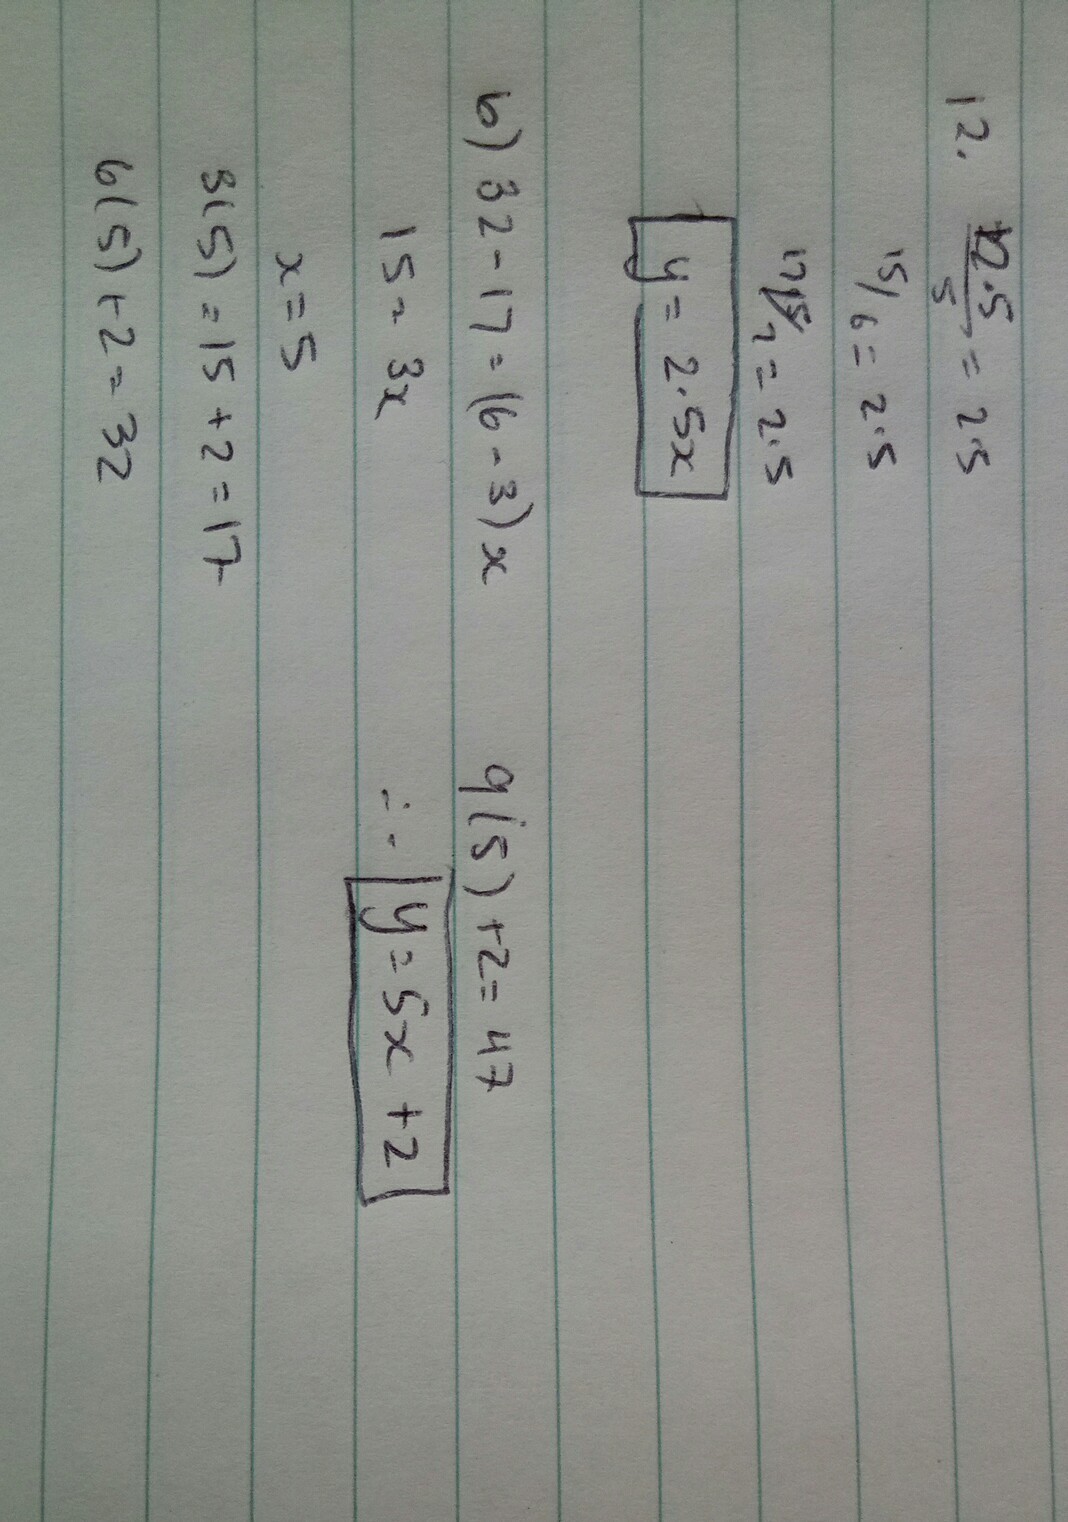 12. 12.5/5 = 2.5
15/6 = 2.5
17.5/7 = 2.5
y = 2.5x
b) 32-17 = (6-3)x
15 = 3x
x = 5
3(5) = 15 + 2 = 17
6(5) + 2 = 32
9(5) + 2 = 47
∴ y = 5x + 2